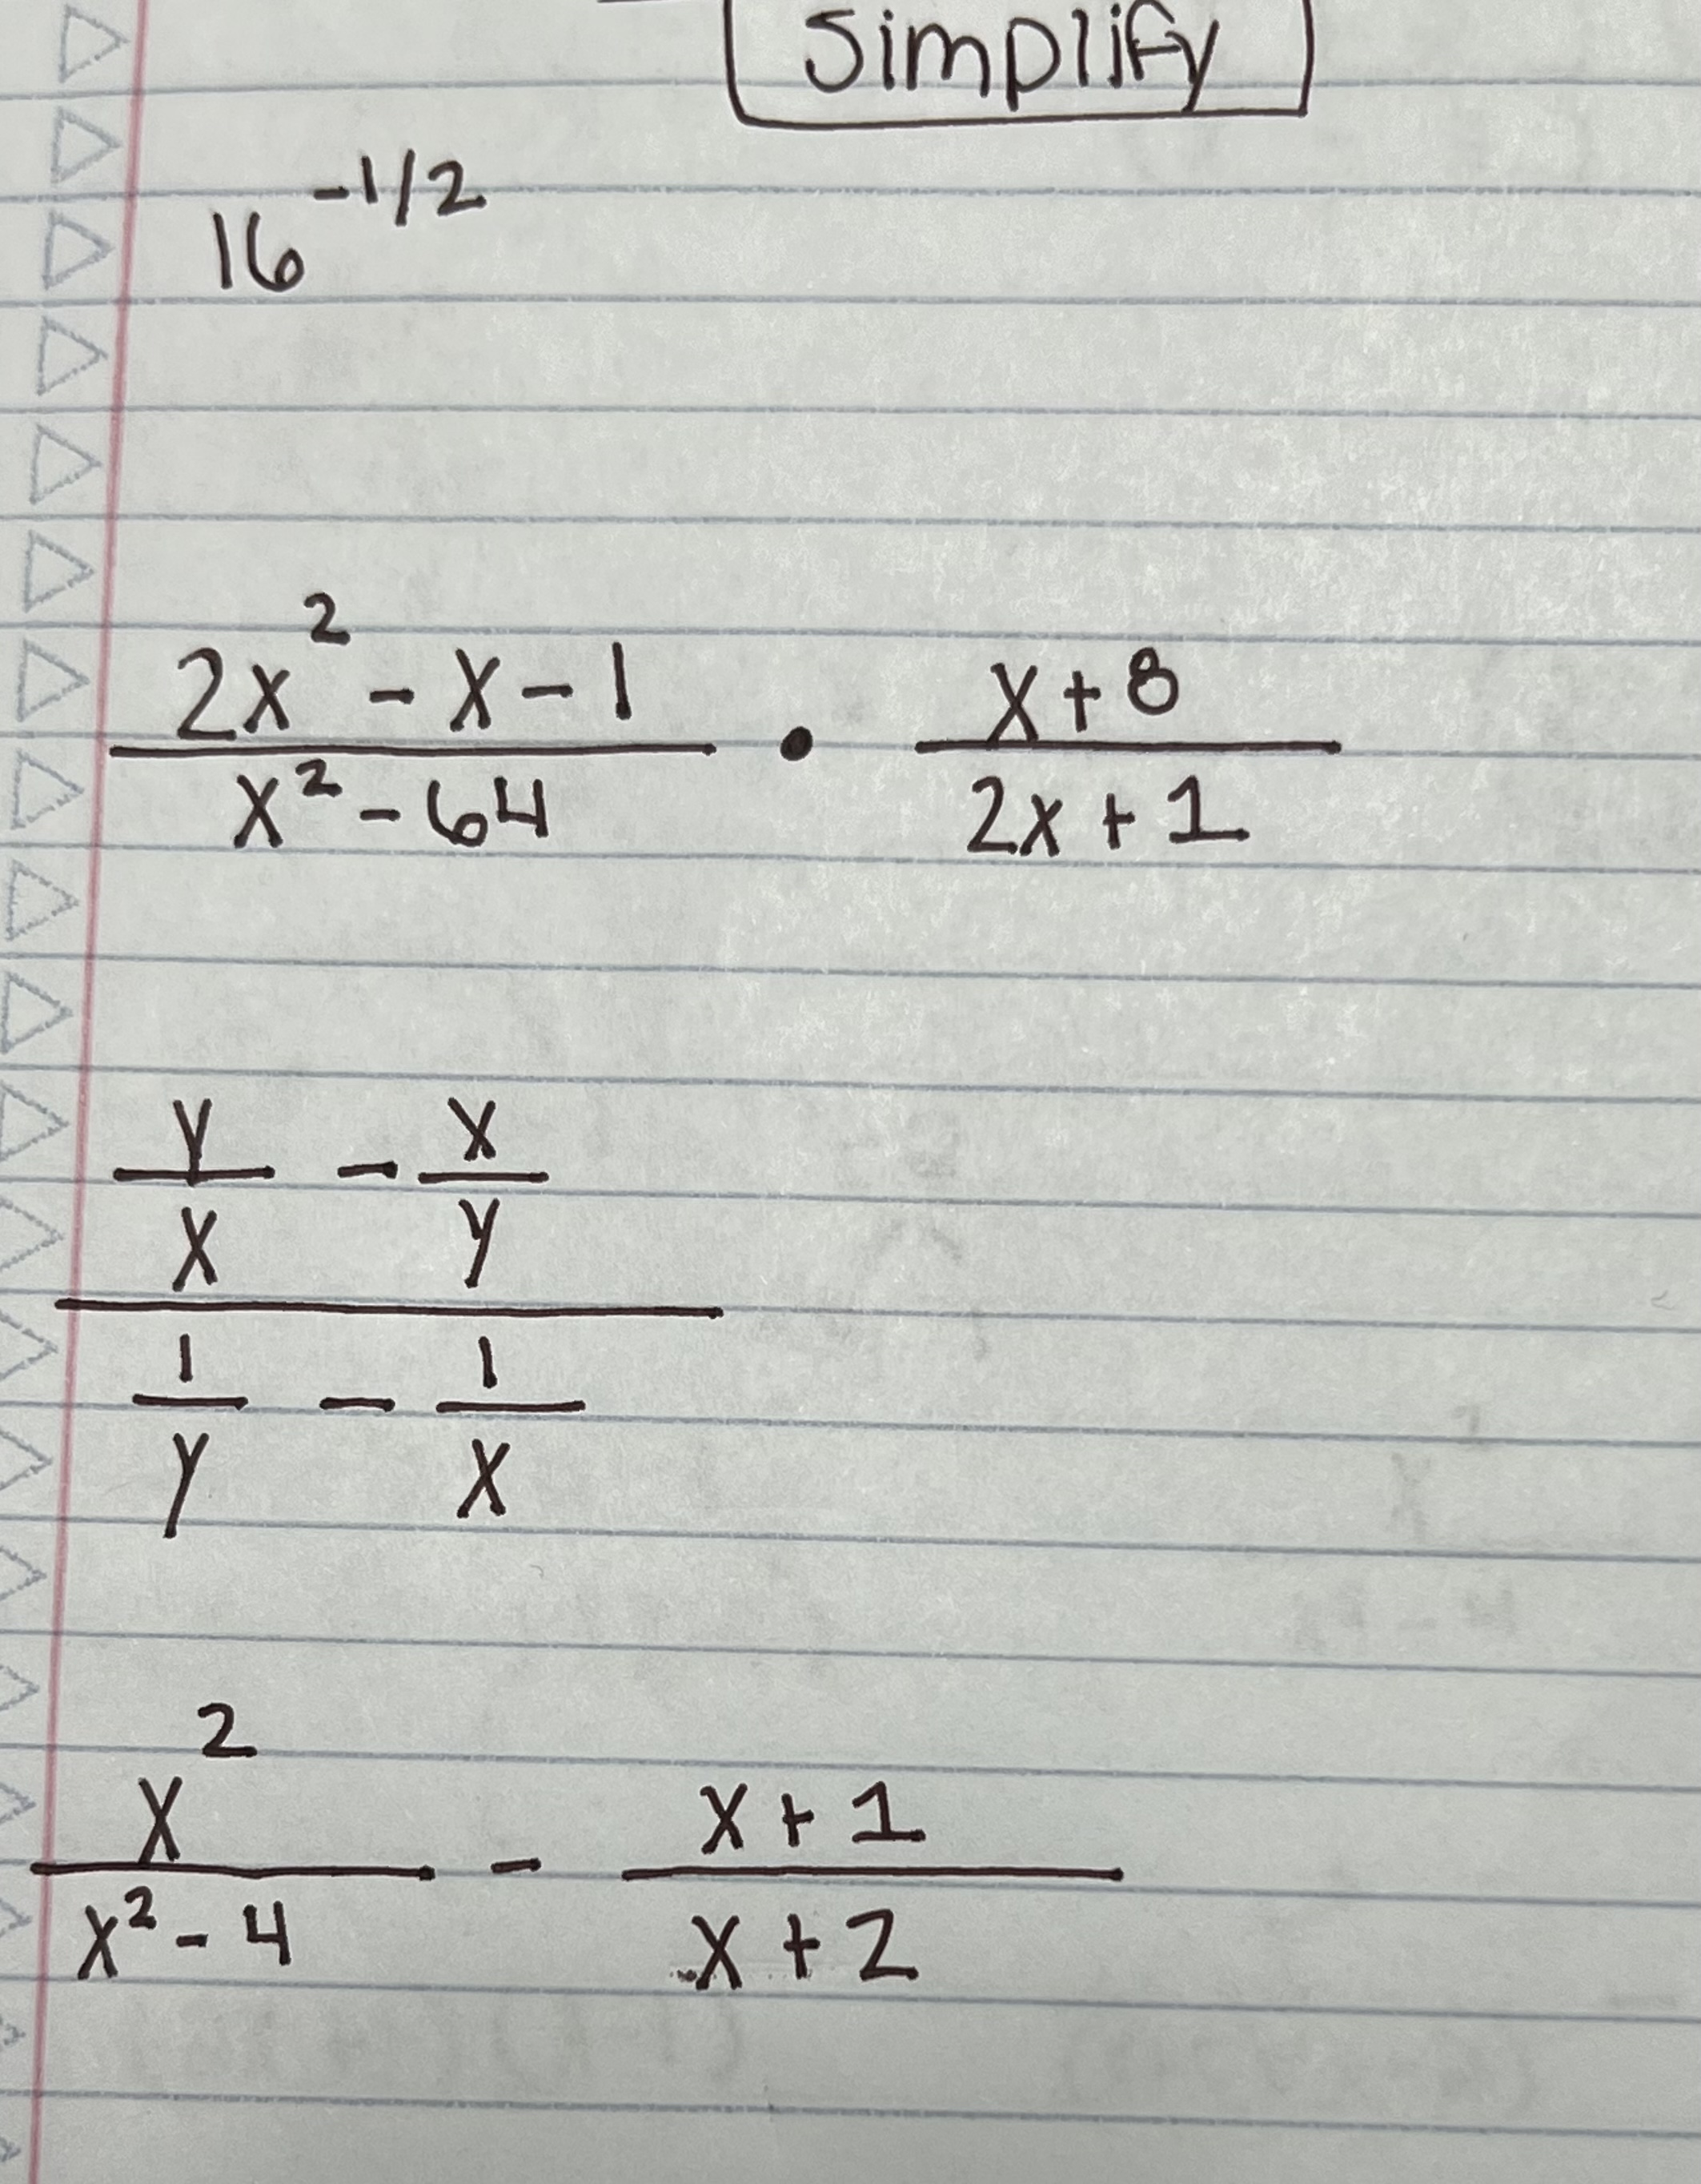 Simplify
16^{-1/2}
\frac{2x^2 - x - 1}{x^2 - 64} \cdot \frac{x + 8}{2x + 1}
\frac{\frac{y}{x} - \frac{x}{y}}{\frac{1}{y} - \frac{1}{x}}
\frac{x^2}{x^2 - 4} - \frac{x + 1}{x + 2}